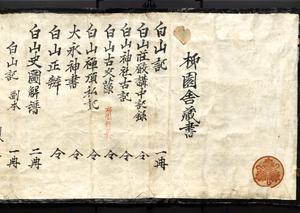 柳園舎蔵書
白山記 一冊
白山荘厳講中記録 一冊
白山神社古記 仝
白山古文蹟 仝
白山禅頂私記 仝
大永神書 仝
白山正辨 仝
白山史圖解譜 二冊
白山記 副本 一冊